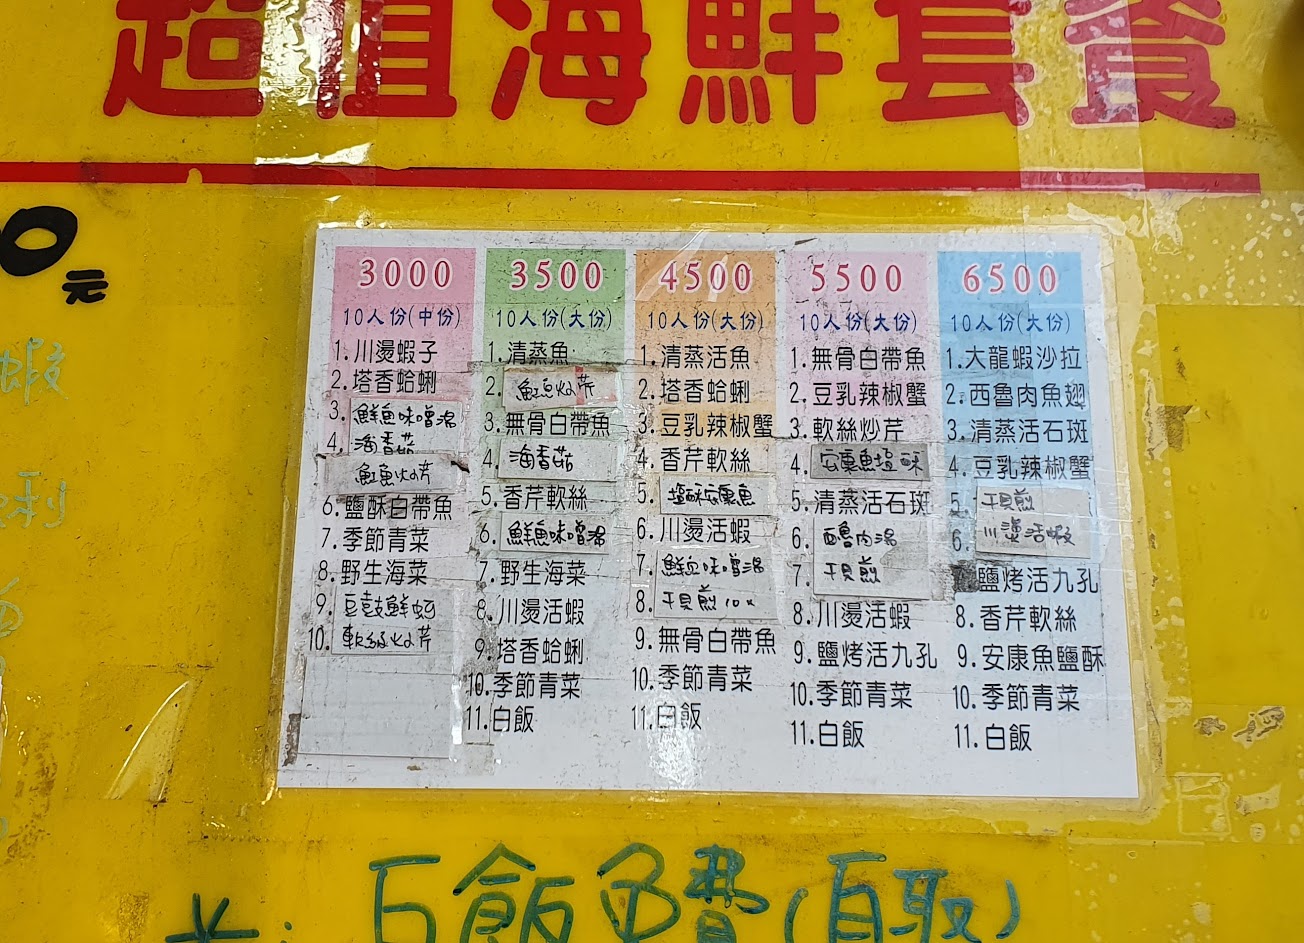 超值海鮮套餐
0元
蝦
3000
10人份(中份)
1.川燙蝦子
2.塔香蛤蜊
3.鮮魚味噌湯
4.海香菇
魟魚炒芹
6.鹽酥白帶魚
7.季節青菜
8.野生海菜
9.豆鼓鮮蚵
10.軟絲炒芹
3500
10人份(大份)
1.清蒸魚
2.魟魚炒芹
3.無骨白帶魚
4.海香菇
5.香芹軟絲
6.鮮魚味噌湯
7.野生海菜
8.川燙活蝦
9.塔香蛤蜊
10.季節青菜
11.白飯
4500
10人份(大份)
1.清蒸活魚
2.塔香蛤蜊
3.豆乳辣椒蟹
4.香芹軟絲
5.塩酥安康魚
6.川燙活蝦
7.鮮魚味噌湯
8.干貝煎10x
9.無骨白帶魚
10.季節青菜
11.白飯
5500
10人份(大份)
1.無骨白帶魚
2.豆乳辣椒蟹
3.軟絲炒芹
4.安康魚塩酥
5.清蒸活石斑
6.西魯肉湯
7.干貝煎
8.川燙活蝦
9.鹽烤活九孔
10.季節青菜
11.白飯
6500
10人份(大份)
1.大龍蝦沙拉
2.西魯肉魚翅
3.清蒸活石斑
4.豆乳辣椒蟹
5.干貝煎
6.川燙活蝦
鹽烤活九孔
8.香芹軟絲
9.安康魚鹽酥
10.季節青菜
11.白飯
白飯免費(自取)